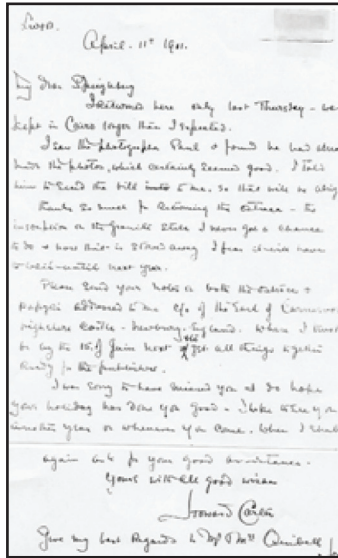 Luxor.
April. 11th 1911.
My dear Spiegelberg
I returned here only last Thursday - was
kept in Cairo longer than I expected.
I saw the photographer Paul & found he had already
made the photos, which certainly seemed good. I told
him to send the bill into to me. so that will be alright
Thanks so much for returning the ostraca - the
inscription on the granite stele I never got a chance
to do & now that is stored away I fear
until next year.
Please send your notes on both the ostraca &
papyri addressed to me c/o of the Earl of Carnarvon
Highclere Castle - Newbury. England. Where I
be by the 15th of June next & get all things together
ready for the publisher.
I was sorry to have missed you & do hope
your holiday has done you good. I hope to see you
another year or whenever you come. When I shall
again ask for your good assistance.
Yours with all good wishes
Howard Carter
Give my best regards to Mr & Mrs Quibell